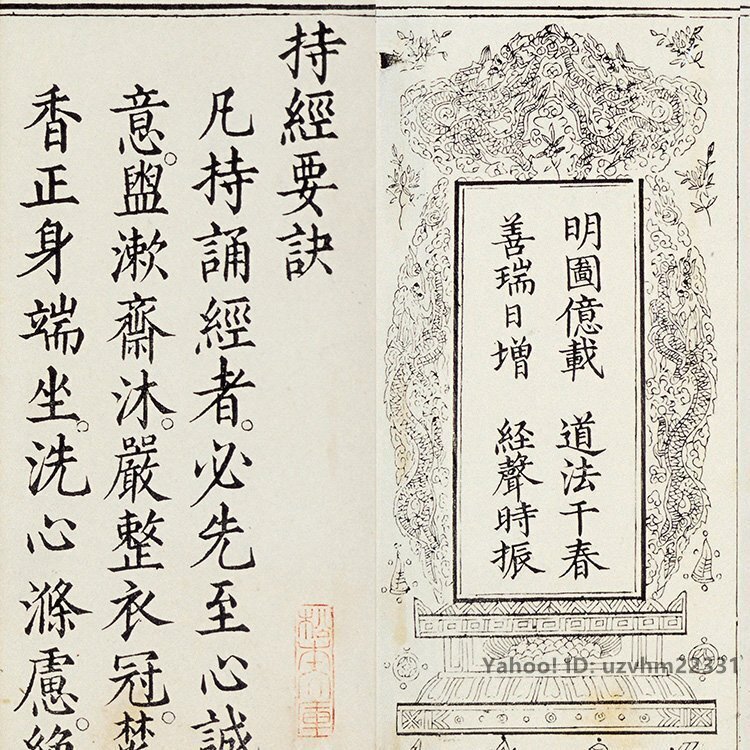 明圖億載　道法千春
善瑞日增　経聲時振
持經要訣
凡持誦經者。必先至心誠
意。盥漱齋沐。嚴整衣冠。
香正身端坐。洗心滌慮。
Yahoo! ID: uzvhm22331